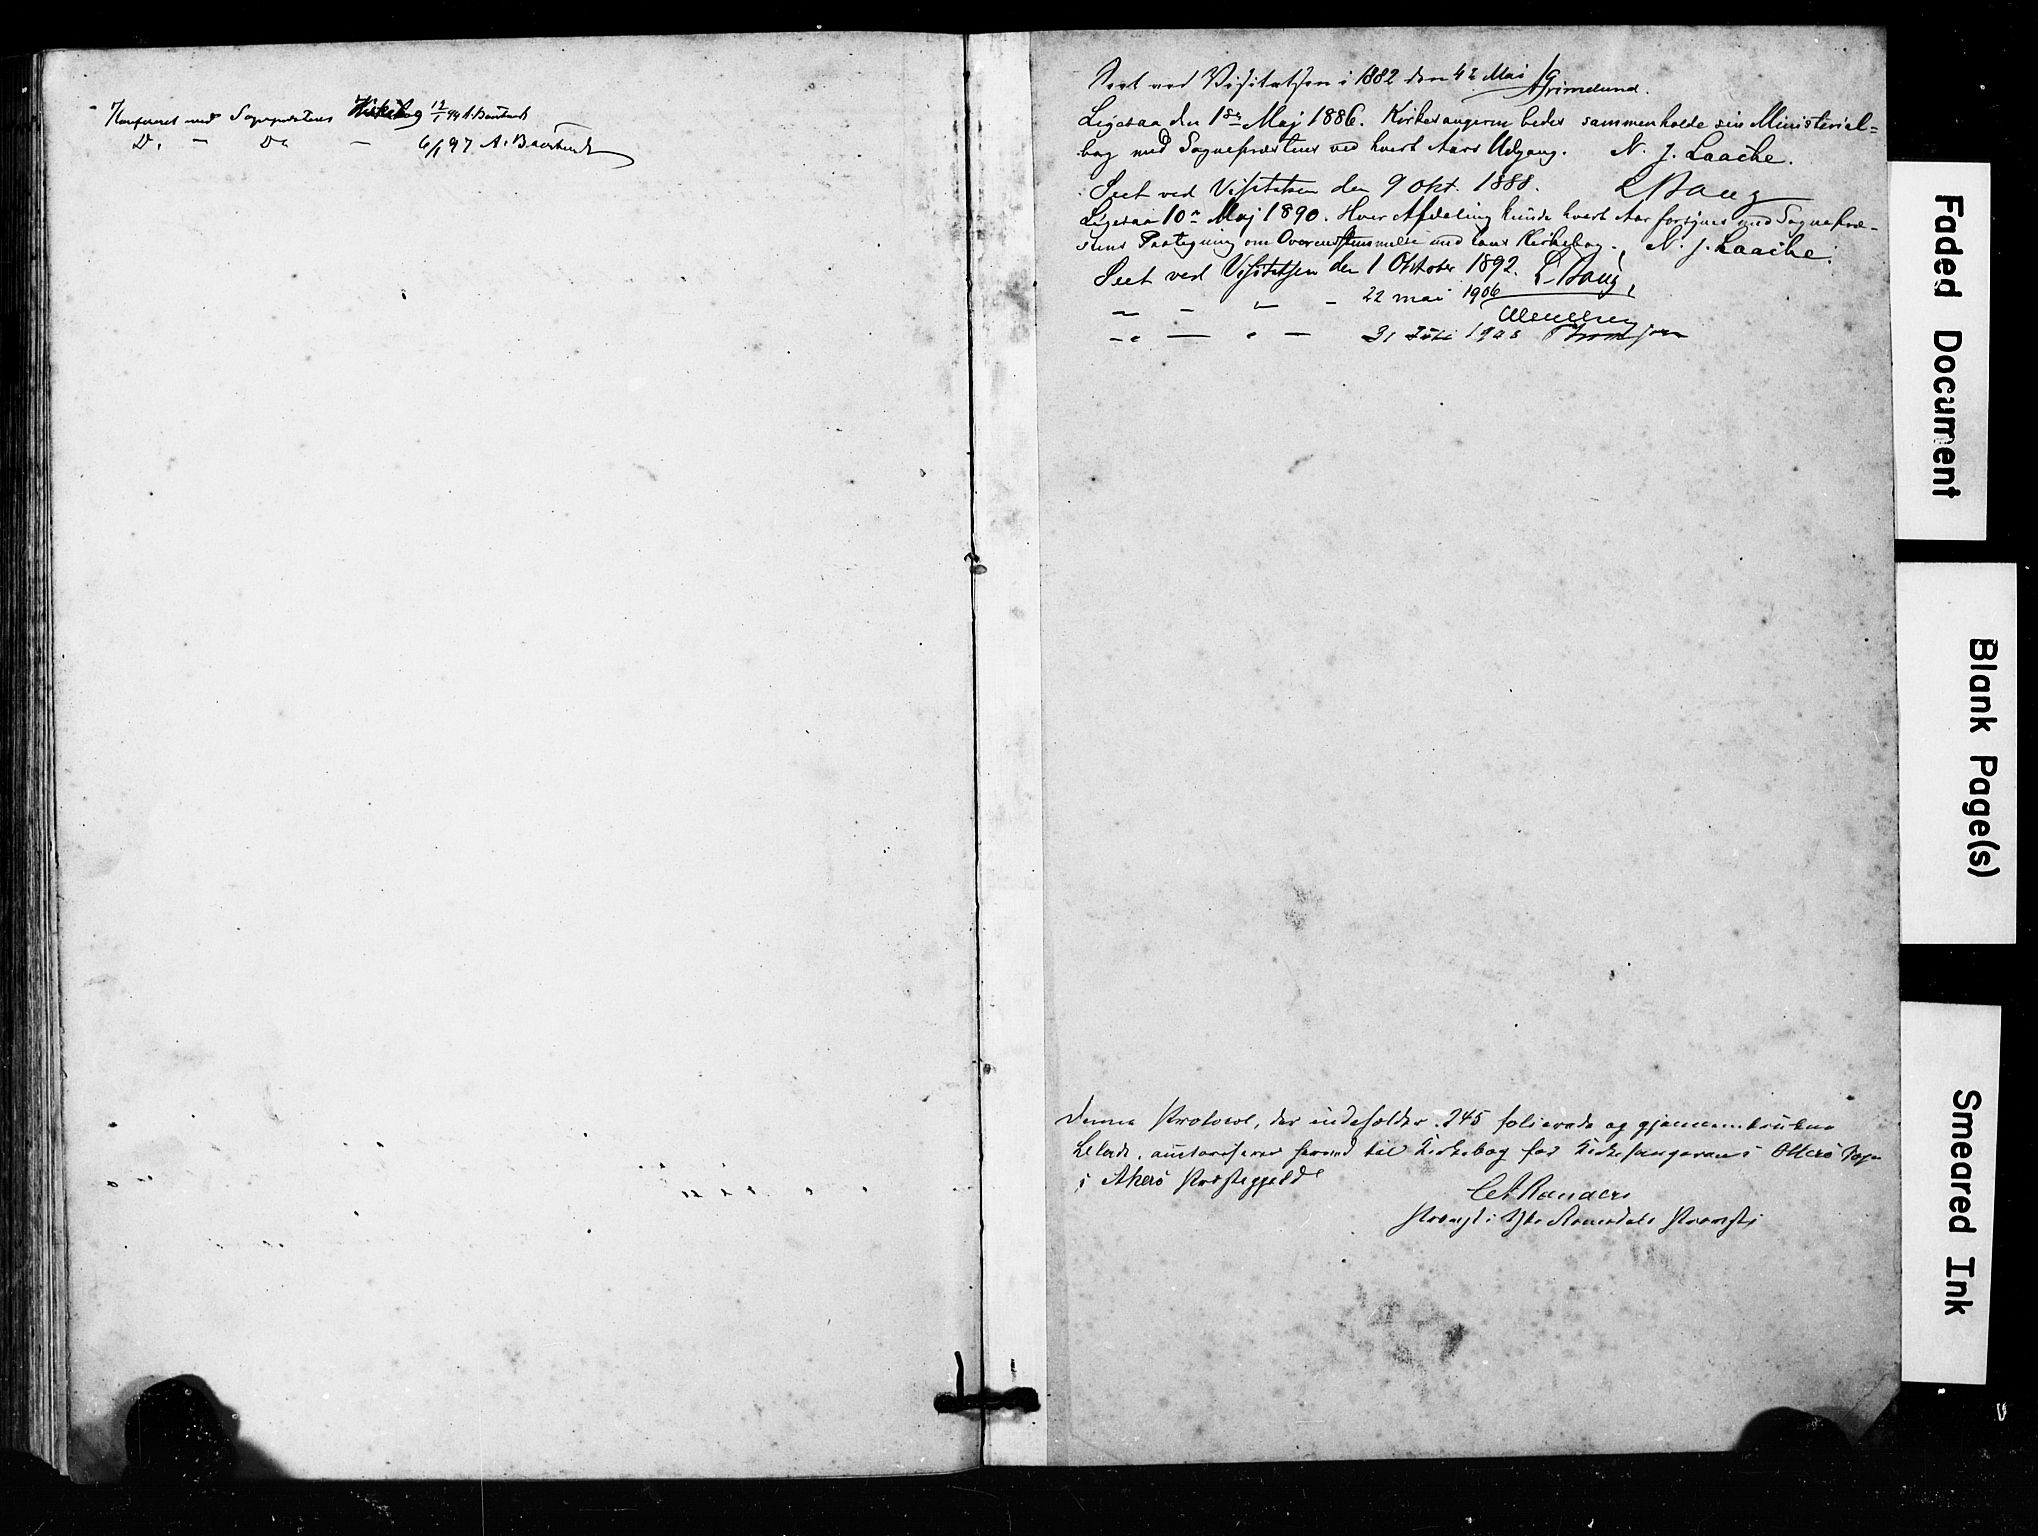 Konfereret med Sognepræstens Kirkebog 12/1 94 A. Bavstendt
Do — Do — 6/1 97 A.
Seet ved Visitatsen i 1882 den 4de Mai Grimelund.
Ligesaa den 1ste Maj 1886. Kirkesangeren bedes sammenholde sin Ministerial=
bog med Sognepræstens ved hvert Aars Udgang. N. J. Laache.
Seet ved Visitatsen den 9 Okt. 1888.
Ligesaa 10de Maj 1890. Hver Afdeling bedes hvert Aar forsynes med Sognepræ-
stens Paategning om Overensstemmelse med hans Kirkebog. N. J. Laache.
Seet ved Visitatsen den 1 Oktober 1892.
— - — - 22 mai 1906
— — " — 31 Juli 1908
Denne Protocol, der indeholder 245 folierede og gjennemtrukne
Blade, autoriseres herved til Kirkebog for Kirkesangeren i Otterø Sogn
i Akerø Præstegjeld
Randers
Provst i Ytre Romsdals Provsti
Faded Document
Blank Page(s)
Smeared Ink